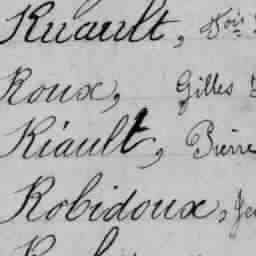 Ruault, Vois
Roux, Gilles
Riault, Pierre
Robidoux, Je